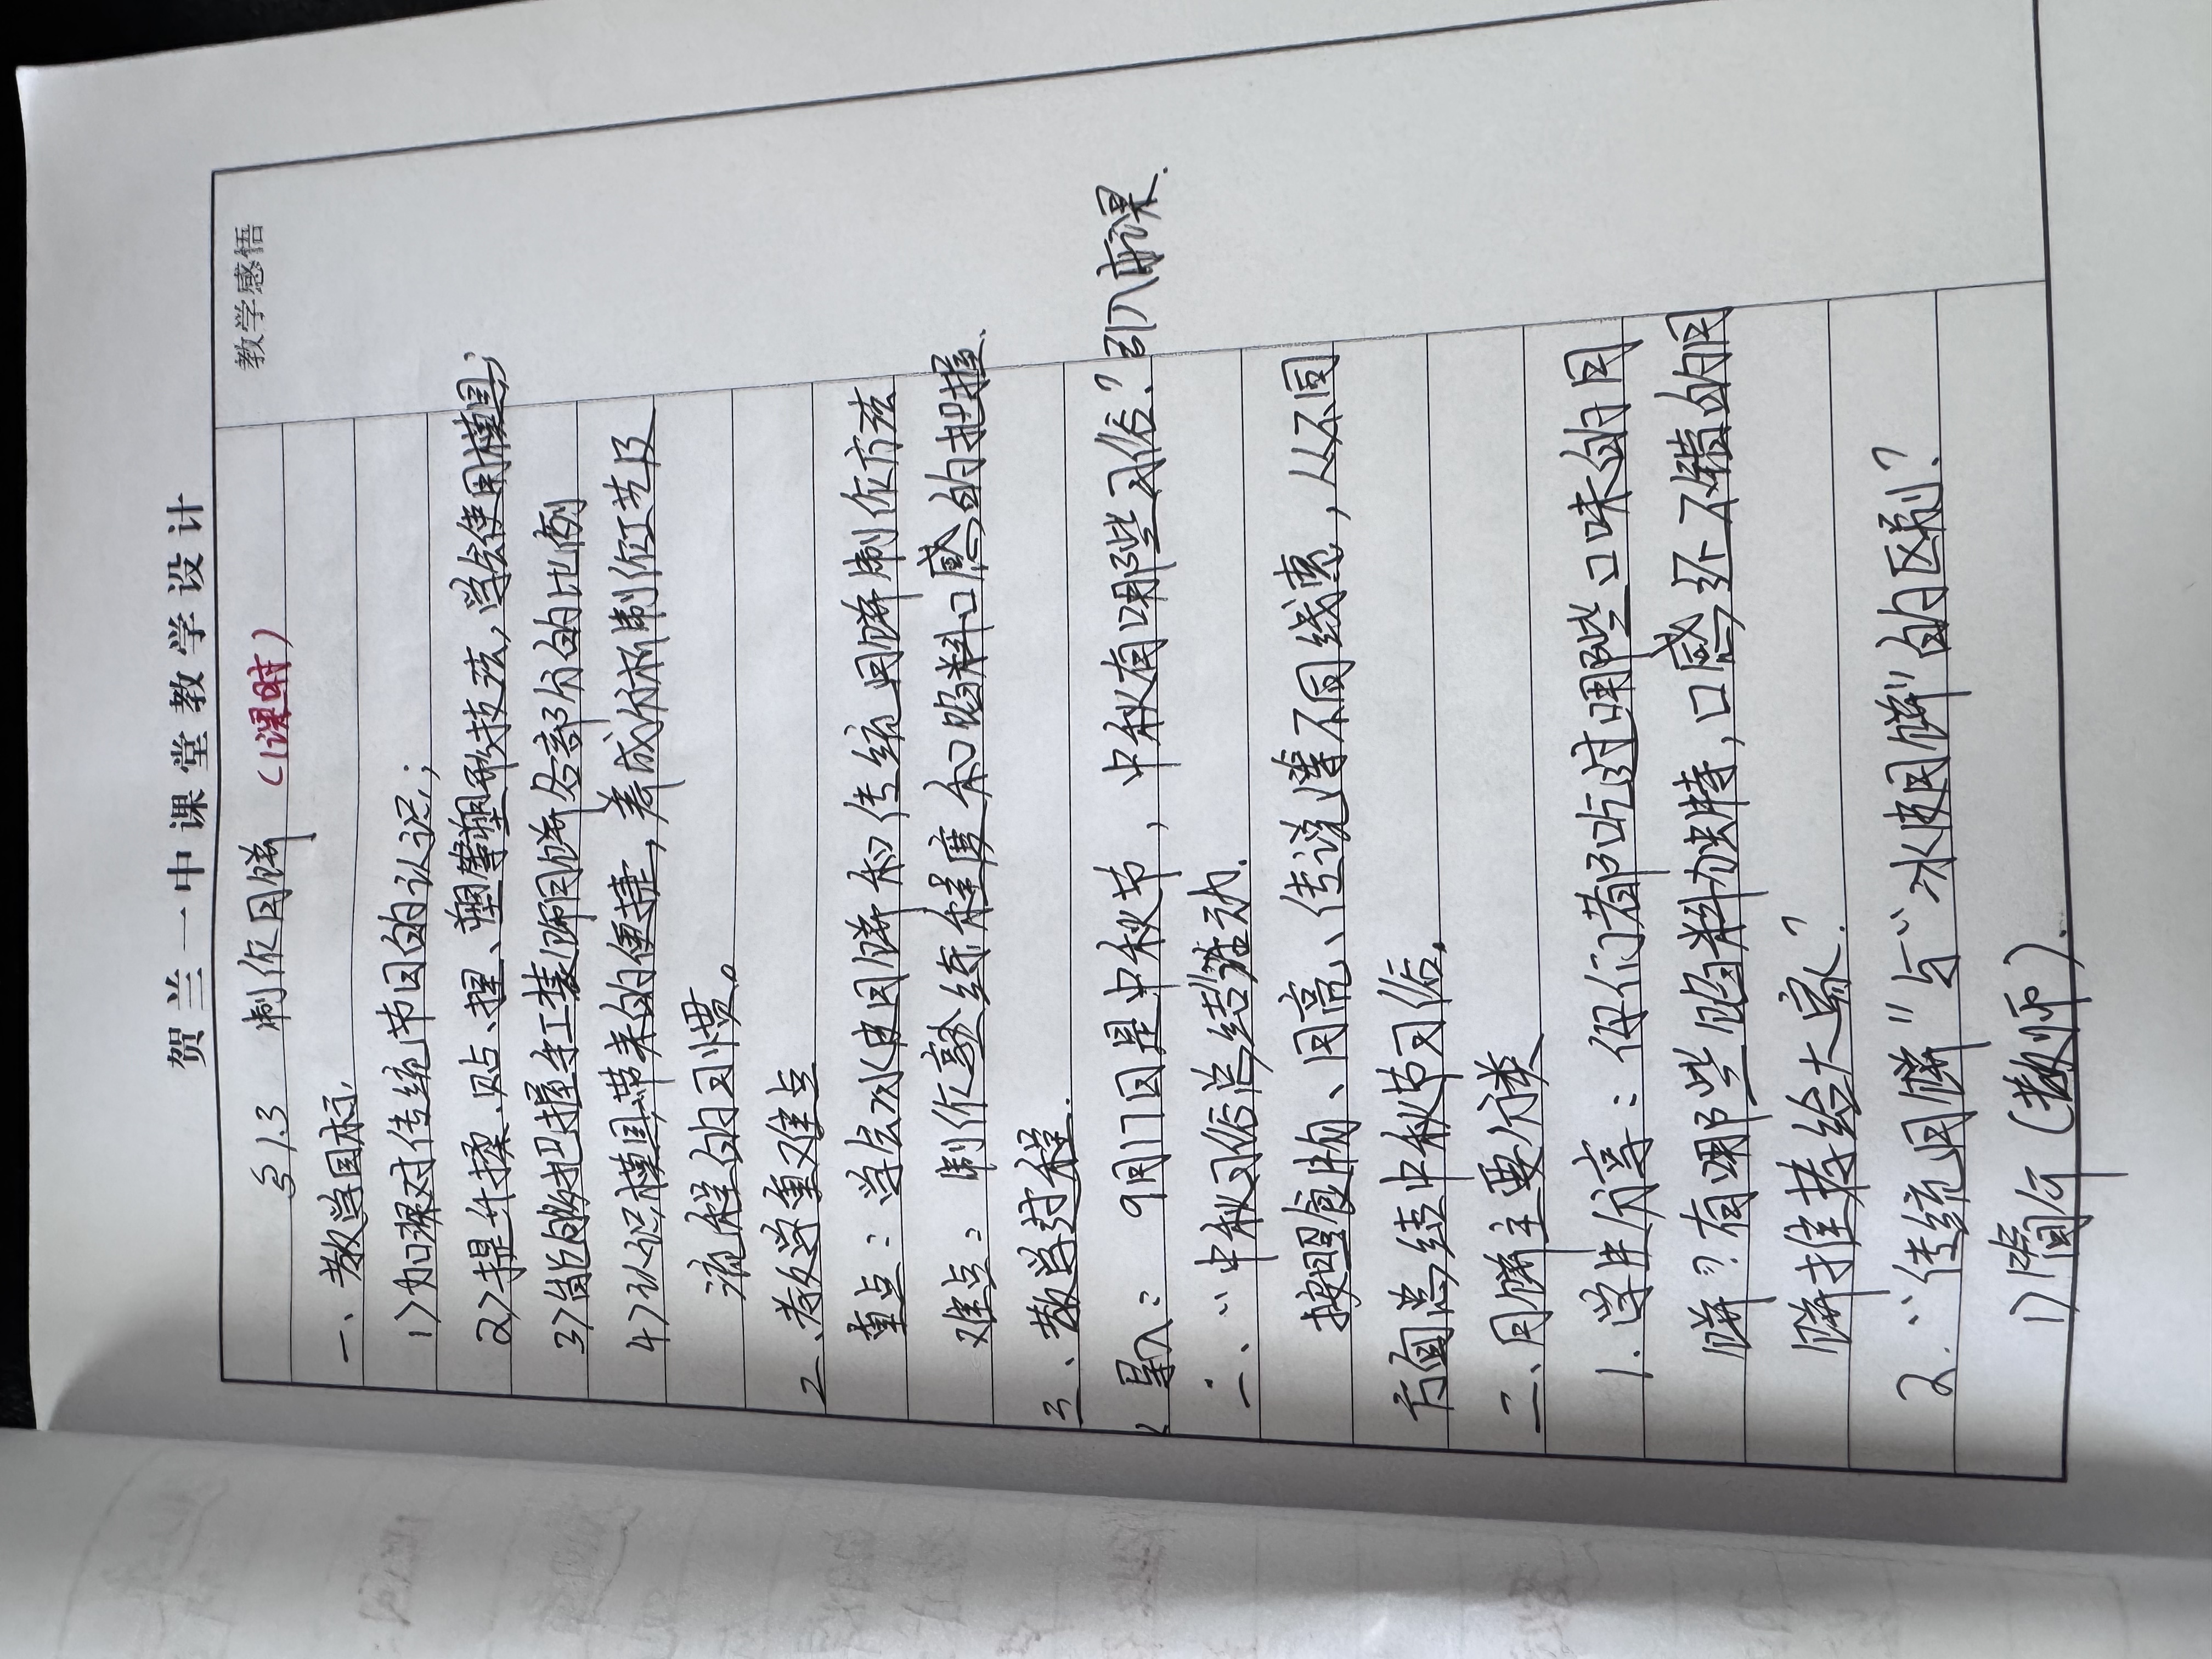 贺兰一中课堂教学设计
教学感悟
§1.3 制作月饼 (1课时)
一、教学目标
1>加深对传统节日的认识;
2>提升揉、贴、捏、塑形技法,学会使用模具;
3>能够把握手工月饼各部分的比例
4>认识模具带来的便捷,养成分析制作工艺及
流程的习惯。
2、教学重难点
重点:学会冰皮月饼和传统月饼制作方法
难点:制作熟练程度和馅料口感的把握.
3、教学过程.
导入:9月17日是中秋节,中秋有哪些习俗?引入新课.
一、“中秋习俗总结活动.
按照食物、月亮、传说等不同线索,从不同
方面总结中秋节习俗.
二、月饼主要分类
1.学生分享:你们都吃过哪些口味的月
饼?有哪些馅料独特,口感还不错的月
饼推荐给大家?
2.“传统月饼”与“冰皮月饼”的区别?
1)简介(教师).